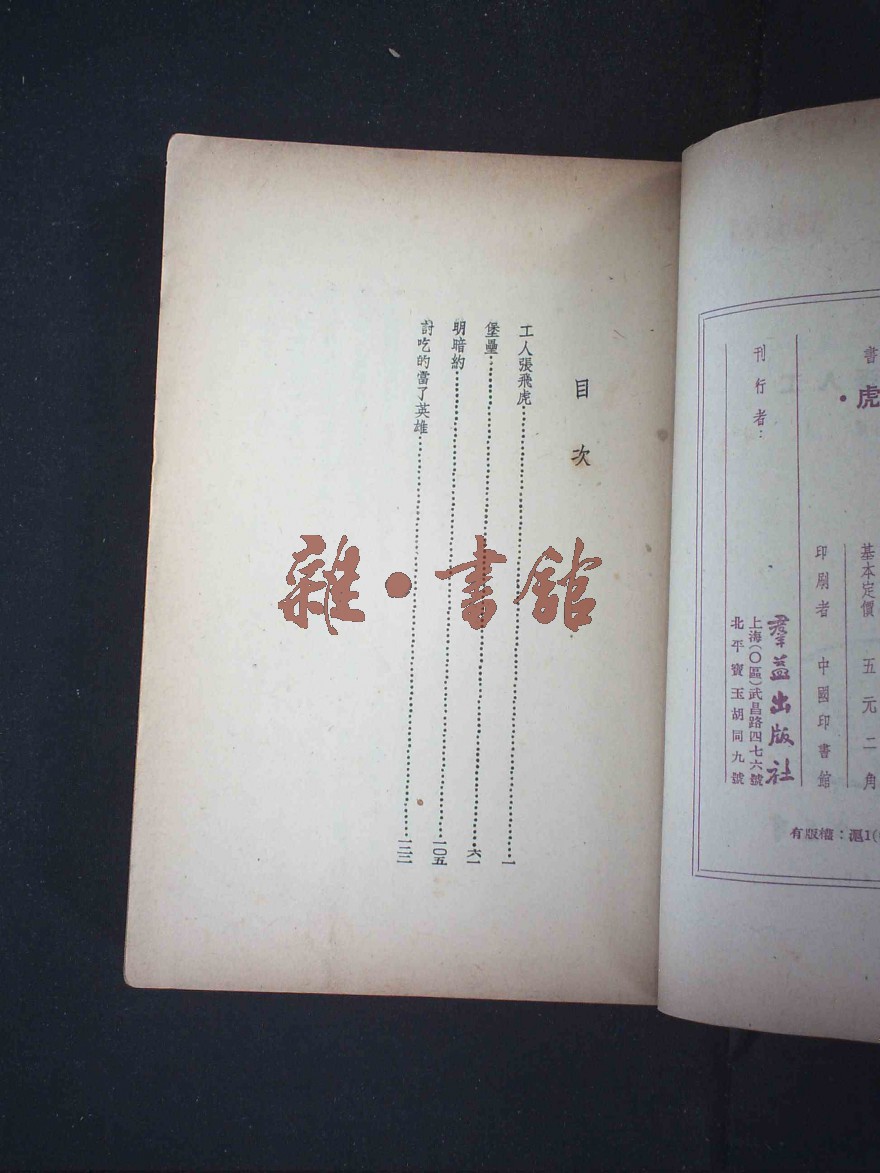 書
虎·
基本定價　五元二角
印刷者　中國印書館
刊行者：
羣益出版社
上海(〇區)武昌路四七六號
北平寶玉胡同九號
有版權：滬1(
目次
工人張飛虎…一
堡壘…六一
明暗約…一〇五
討吃的當了英雄…一二三
雜·書館